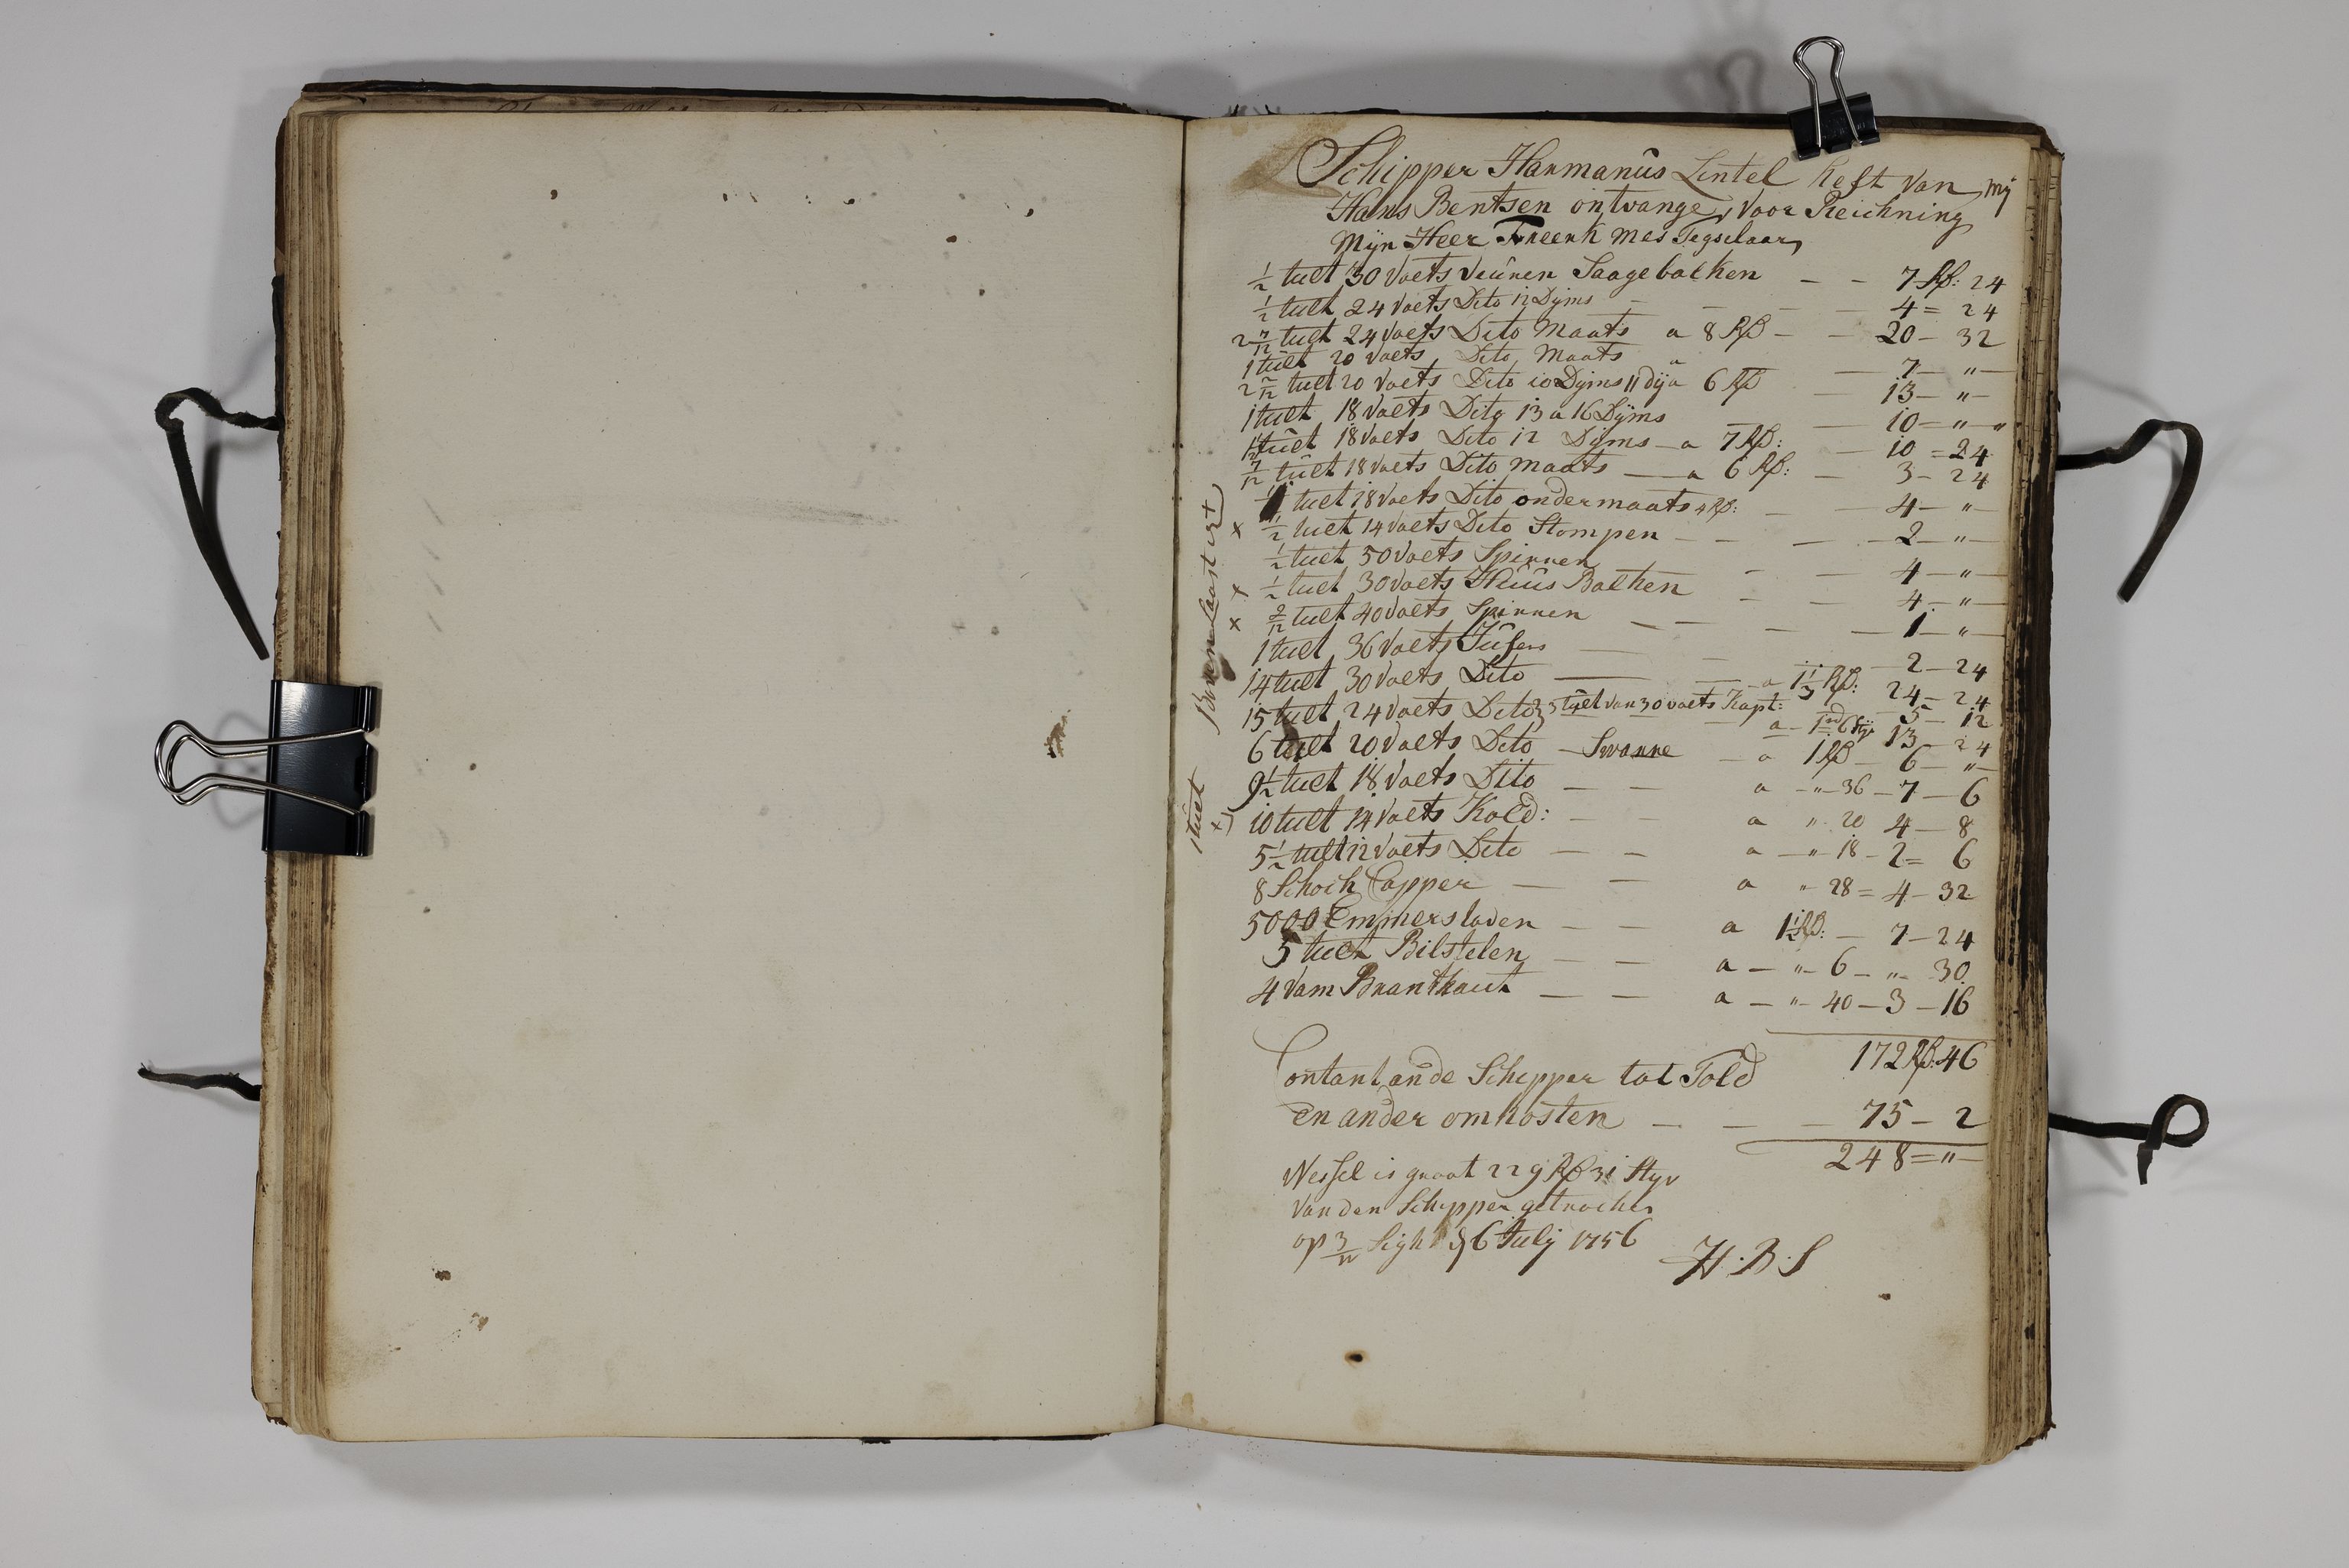 Schipper Harmanus Lintel heft van mij
Hans Bentsen ontvange, voor Reichning
Mijn Heer Freerk Mes Tegselaar,
1/2 tuelt 30 Voets Veuren Saagebalken — — 7 Rß: 24
1/2 tuelt 24 Voets Dito 12 Dijms — — — 4 = 24
2 7/12 tuelt 24 Voets Dito Maats a 8 Rß — — 20 — 32
1 tuelt 20 Voets Dito Maats " — 7 — " —
2 2/12 tuelt 20 Voets Dito 10 Dijms 11 dij a 6 Rß — 13 — " —
1 tuelt 18 Voets Dito 13 a 16 Dijms — 10 — " — "
1 1/2 tuelt 18 Voets Dito 12 Dijms — a 7 Rß: — 10 = 24
7/12 tuelt 18 Voets Dito Maats — a 6 Rß: — 3 — 24
1 tuelt 18 Voets Dito ondermaats 4 Rß: — 4 — " —
x 1/2 tuelt 14 Voets Dito Stompen — — — 2 — " —
1/2 tuelt 50 Voets Spirren — — 4 — " —
x 1/2 tuelt 30 Voets Huus Balken — — 4 — " —
x 2/12 tuelt 40 Voets Spirren — — — 1 — " —
1 tuelt 36 Voets Jufers — — 2 — 24
14 tuelt 30 Voets Dito — — a 1 1/3 Rß: 24 = 24
15 tuelt 24 Voets Dito 3 tuelt van 30 voets Kapt: 5 — 12
a — 1 6 13 — 24
6 tuelt 20 Voets Dito — Swanne — a 1 Rß — 6 — " —
9 1/2 tuelt 18 Voets Dito — — a — " — 36 — 7 — 6
10 tuelt 14 Voets Kold: — — a " 20 4 — 8
5 1/2 tuelt 12 Voets Dito — — a — " 18 — 2 = 6
8 Schock Capper — — a " 28 = 4 — 32
5000 Emmerstaven — — a 1 1/2 Rß: — 7 — 24
5 tuelt Bilstelen — — a — " — 6 — " — 30
4 Vam Branthaut — — a — " — 40 — 3 — 16
172 Rß: 46
Contant ande Schipper tot Told
en ander omkosten — — — 75 — 2
248 = " —
Wessel is groot 229 Rß 31 Styv
Van den Schipper getrocken
op 3/m Sight d 6 Julij 1756
H. B. S
tuelt